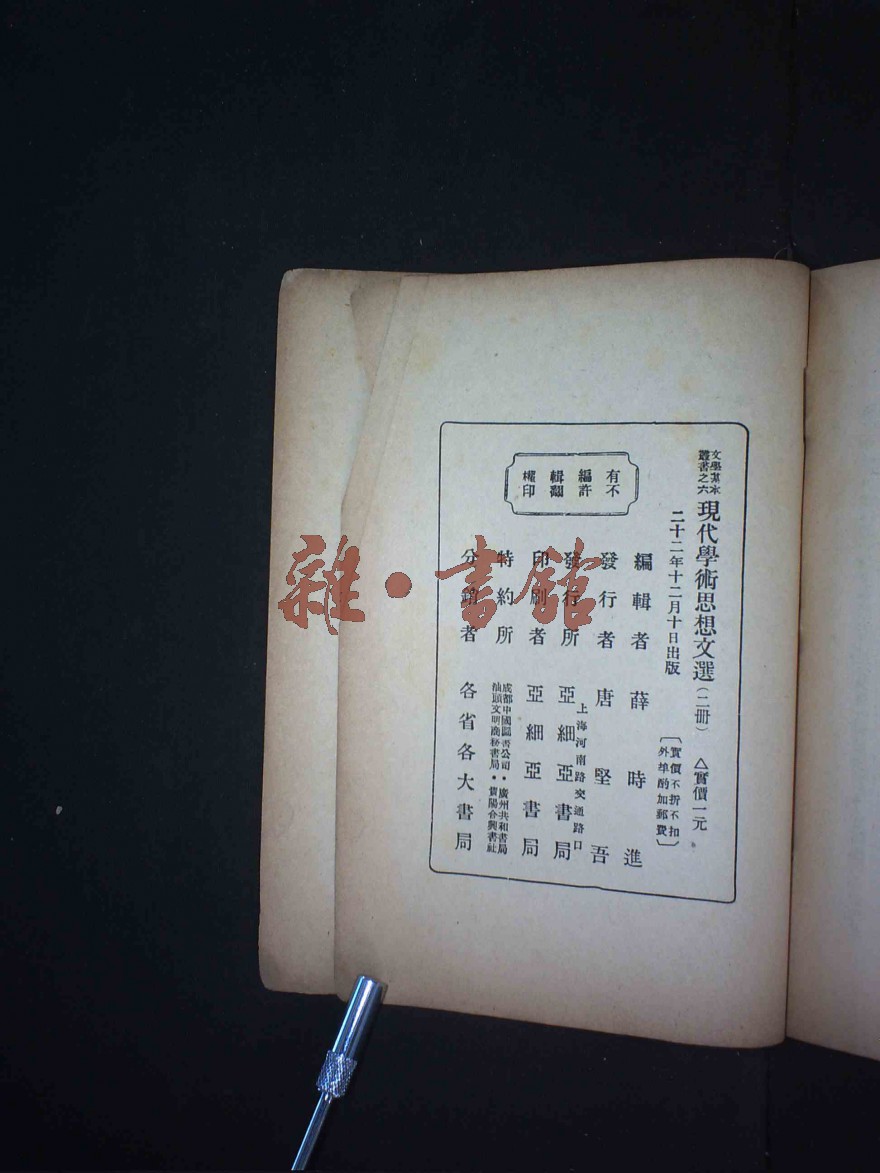 文學基本
叢書之六
現代學術思想文選(二冊) △實價一元
二十二年十二月十日出版
〔實價不折不扣
外埠酌加郵費〕
編輯者 薛時進
發行者 唐堅吾
發行所 上海河南路交通路口
亞細亞書局
印刷者 亞細亞書局
特約所 成都中國圖書公司・廣州共和書局
汕頭文明商務書局・貴陽合興書社
分銷者 各省各大書局
有不
編許
輯翻
權印
雜・書館